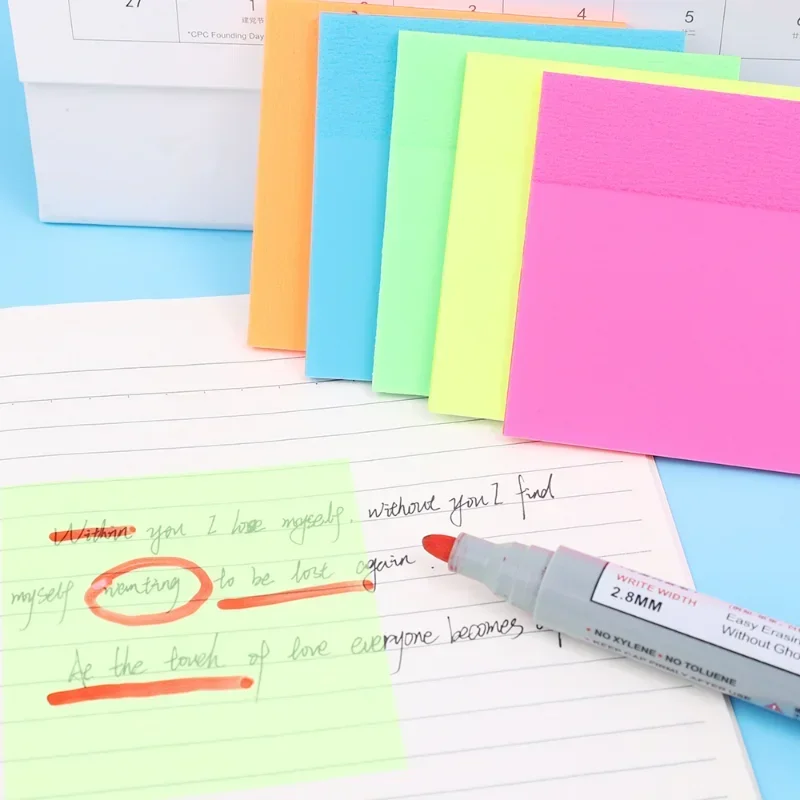 27
1
3
4
5
建党节
*CPC Founding Day
Within you I lose myself, without you I find
myself wanting to be lost again.
At the touch of love everyone becomes
WRITE WIDTH
2.8MM
Easy Erasin
Without Gho
• NO XYLENE • NO TOLUENE
• KEEP CAP FIRMLY AFTER USE